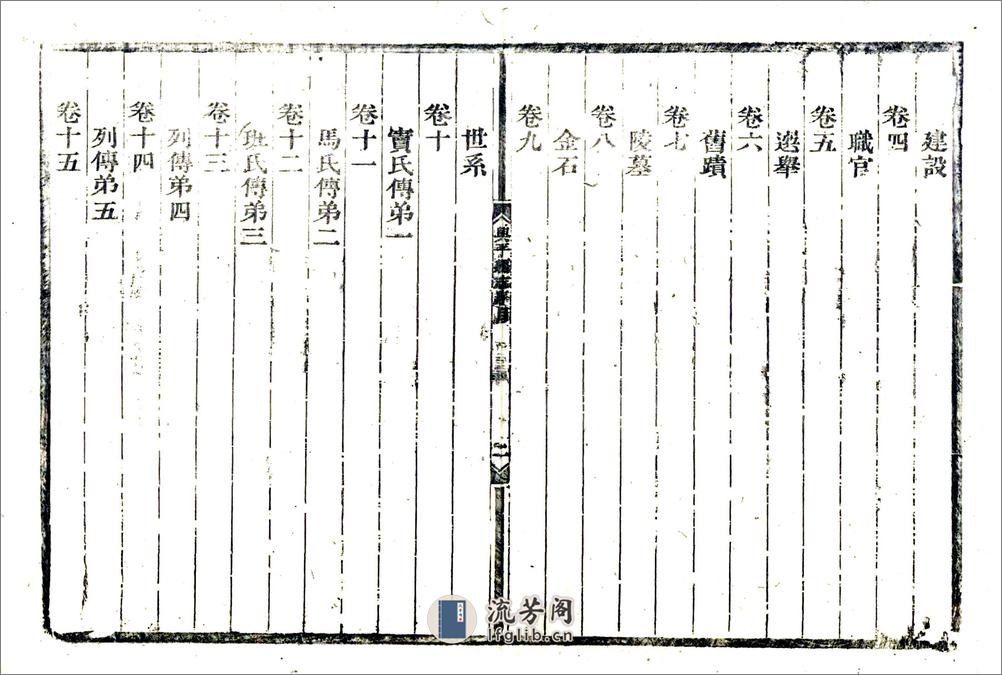 建設
卷四
職官
卷五
選舉
卷六
舊蹟
卷七
陵墓
卷八
金石
卷九
興平縣志
二
世系
卷十
竇氏傳弟一
卷十一
馬氏傳弟二
卷十二
班氏傳弟三
卷十三
列傳弟四
卷十四
列傳弟五
卷十五
流芳阁
lfglib.cn